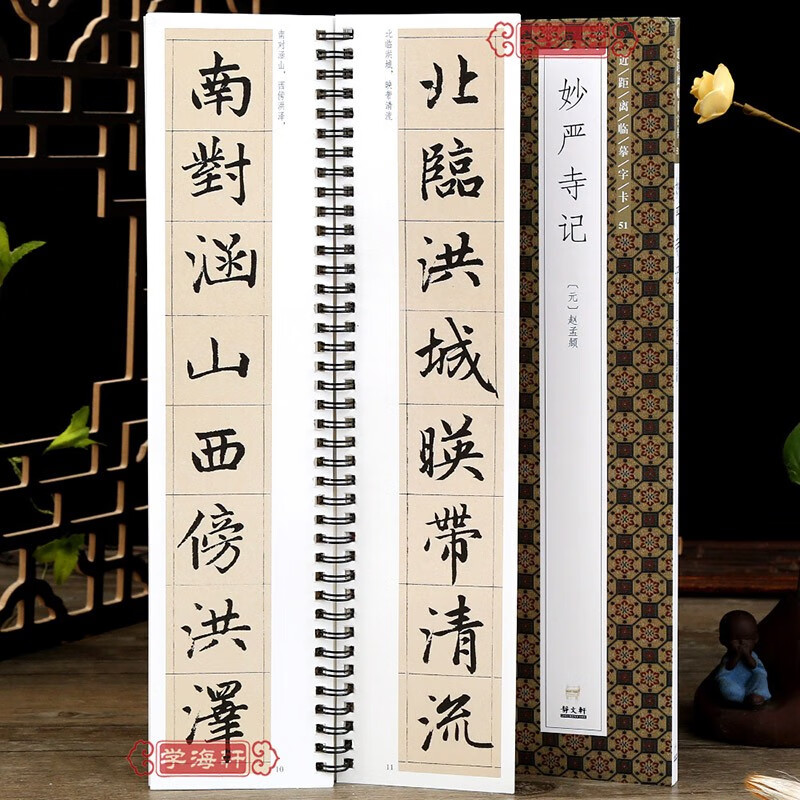 南對涵山西傍洪澤
南对涵山，西傍洪泽，
10
北臨洪城暎帶清流
北临 城，映带清
11
近/距/离/临/摹/字/卡/ 51
妙严寺记
〔元〕赵孟頫
文轩
学海轩